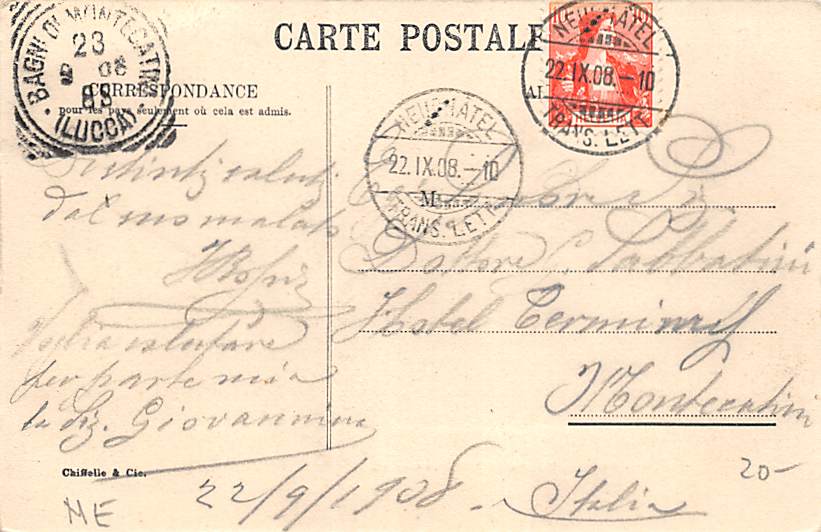 CARTE POSTALE
BAGNI DI MONTECATINI
23
9 08
8S
(LUCCA)
NEUCHATEL
22.IX.08.-10
TRANS. LETT.
CORRESPONDANCE
pour les pays seulement où cela est admis.
NEUCHATEL
22.IX.08.-10
TRANS. LETT.
M
Distinti saluti
dal suo malato
Dottore G. Sabbatini
Hotel
Montecatini
Italia
salutare
per parte mia
la Sig. Giovannina
22/9/1908
Chiffelle & Cie.
ME
20-